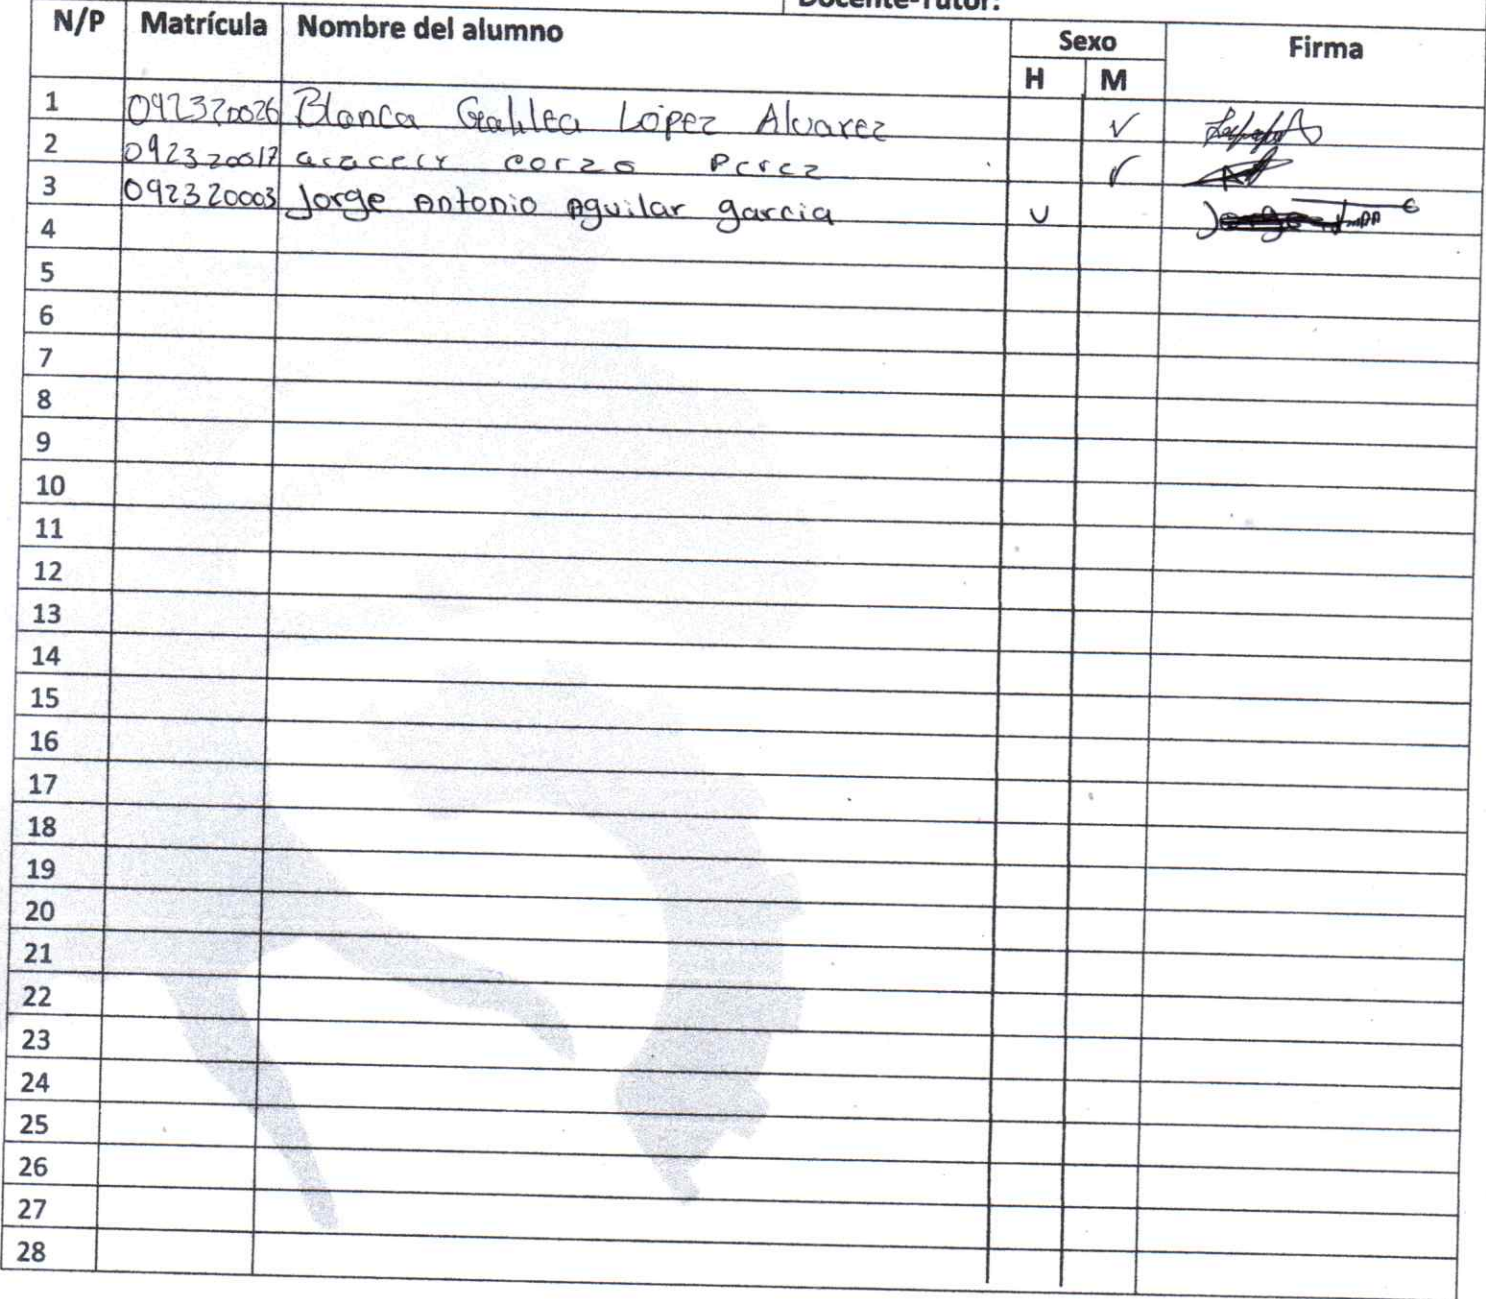 Docente-Tutor:
N/P Matrícula Nombre del alumno Sexo Firma
H M
1 092320026 Blanca Galilea López Alvarez √
2 092320017 aracely corzo Perez √
3 092320003 Jorge Antonio Aguilar garcia √
4
5
6
7
8
9
10
11
12
13
14
15
16
17
18
19
20
21
22
23
24
25
26
27
28